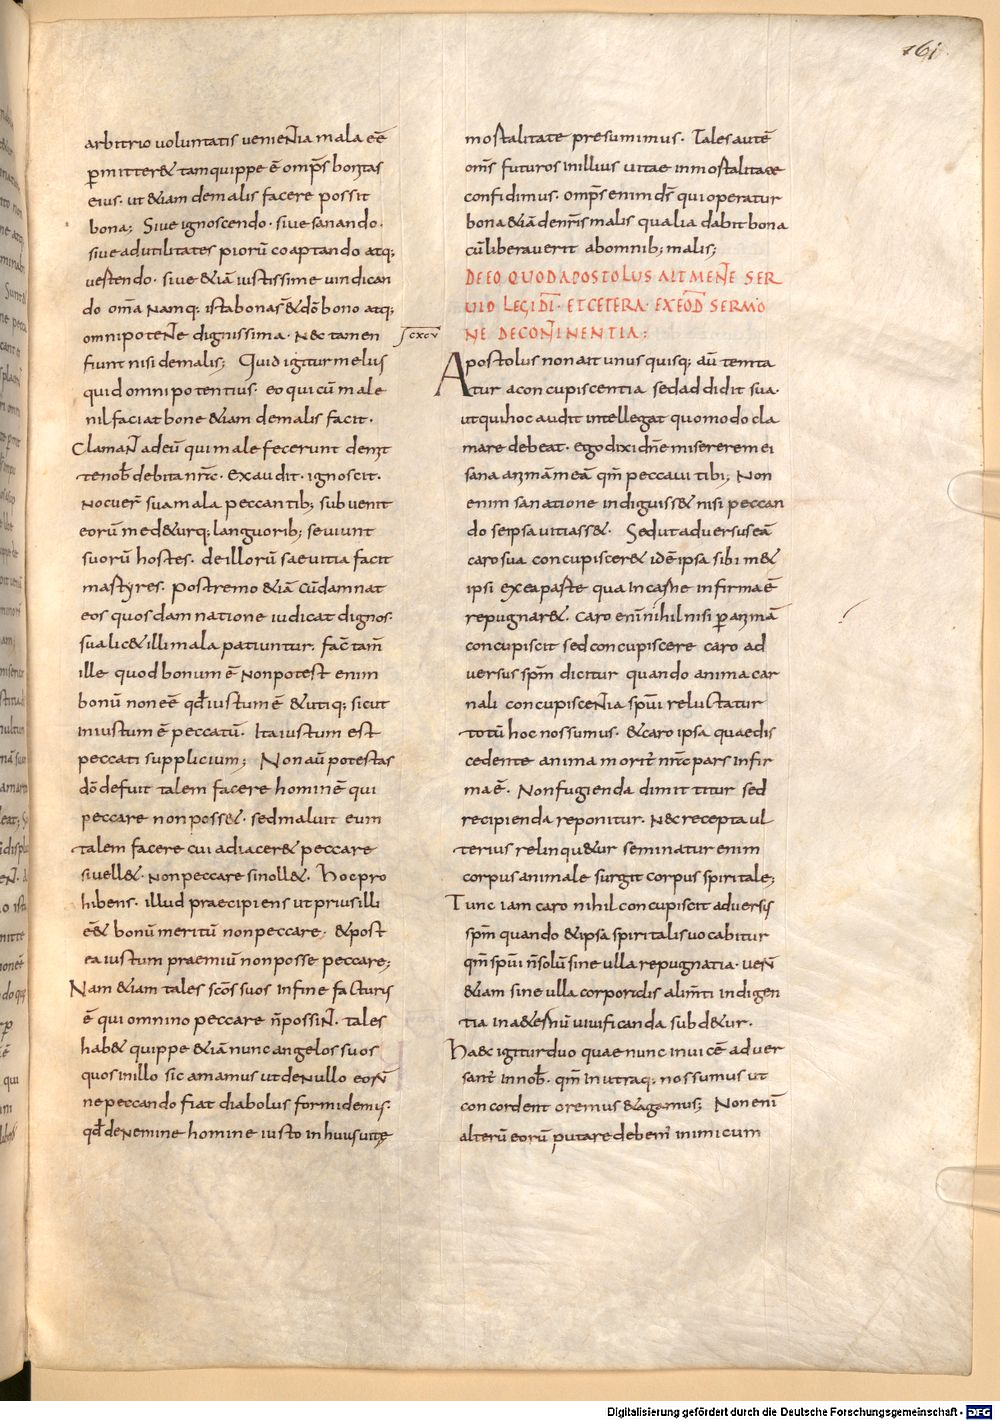 161
arbitrio uoluntatis uenientia mala eē
ꝑmitter& tamquippe ē omp̄s bonitas
eius · ut &iam demalis facere possit
bona; Siue ignoscendo · siue sanando ·
siue adutilitates piorū coaptando atq;
uestendo · siue &iā iustissime uindican
do om̄a Namq; ista bona s̄& dō bono atq;
omnipotente dignissima · N&c tamen
fiunt nisi demalis; Quid igitur melius
quid omnipotentius · eo qui cū male
nil faciat bone &iam demalis facit ·
Clamant adeū qui male fecerunt demit
te nob̄ debita nr̄a · exaudit · ignoscit ·
Nocuer̄ sua mala peccantib; subuenit
eorū med&urq; languorib; seuiunt
suorū hostes · de illorū saeuitia facit
martyres · postremo &iā cūdamnat
eos quos damnatione iudicat dignos ·
sua lic& illi mala patiuntur · fac̄ tam̄
ille quod bonum ē Nonpotest enim
bonū non eē qd̄ iustum ē &utiq; sicut
iniustum ē peccatū · Ita iustum est
peccati supplicium; Non aū potestas
dō defuit talem facere hominē qui
peccare non poss& · sed maluit eum
talem facere cui adiacer& peccare
si uell& · Nonpeccare si noll& · hoc pro
hibens · illud praecipiens ut prius illi
eē& bonū meritū non peccare · & post
ea iustum praemiū non posse peccare;
Nam &iam tales scōs suos in fine facturus
ē qui omnino peccare n̄ possint · tales
hab& quippe &iā nunc angelos suos
quos in illo sic amamus ut de Nullo eorū
ne peccando fiat diabolus formidemus ·
qd̄ de Nemine homine iusto in huius uitę
ſcxcv
mortalitate presumimus · Tales autē
om̄s futuros in illius uitae inmortalitate
confidimus · omp̄s enim ds̄ qui operatur
bona &iā de nr̄is malis qualia dabit bona
cū liberauerit ab omnib; malis;
DE EO QUOD APOSTOLUS AIT MENTE SER
UIO LEGI DĪ · ET CETERA · EX EOD̄ SERMO
NE DE CONTINENTIA;
Apostolus non ait unus quisq; aū temta
tur a concupiscentia sed addidit sua ·
ut qui hoc audit intellegat quomodo cla
mare debeat · ego dixi dn̄e miserere mei
sana animā meā qm̄ peccaui tibi; Non
enim sanatione indiguiss& nisi peccan
do se ipsa uitiass& · Sed ut aduersus eā
caro sua concupiscer& id ē ipsa sibi m&
ipsi ex ea parte qua in carne infirma ē
repugnar& · Caro enī nihil nisi ꝑ animā
concupiscit sed concupiscere caro ad
uersus spm̄ dicitur quando anima car
nali concupiscentia spūi reluctatur
totū hoc nos sumus · & caro ipsa quae dis
cedente anima morit̄ nr̄a pars infir
ma ē · Non fugienda dimittitur sed
recipienda reponitur · N&c recepta ul
terius relinqu&ur seminatur enim
corpus animale surgit corpus spiritale;
Tunc iam caro nihil concupiscit aduersus
spm̄ quando & ipsa spiritalis uocabitur
qm̄ spūi n̄ solū sine ulla repugnatia · uerū
&iam sine ulla corporalis alimti indigen
tia in a&ernū uiuificanda subd&ur ·
Haec igitur duo quae nunc inuicē aduer
sant̄ in nob̄ · qm̄ in utraq; nos sumus ut
concordent oremus & agamus; Non enī
alterū eorū putare debem̄ inimicum
Digitalisierung gefördert durch die Deutsche Forschungsgemeinschaft - DFG